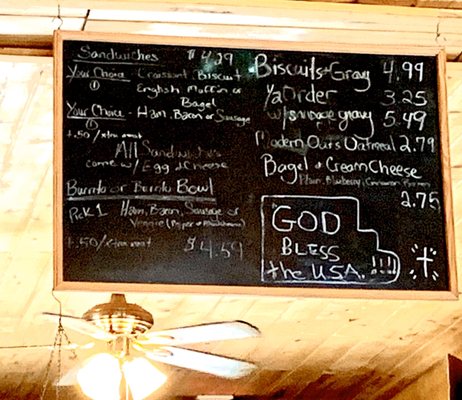 Sandwiches $4.29
Your Choice - Croissant Biscuit
① English Muffin or
Bagel
Your Choice - Ham, Bacon or Sausage
①
+.50/xtra meat
All Sandwiches
come w/ Egg & Cheese
Burrito or Burrito Bowl
Pick 1 Ham, Bacon, Sausage or
Veggie (Pepper & Mushroom)
+.50/xtra meat $4.59
Biscuits + Gravy 4.99
½ Order 3.25
w/ sausage gravy 5.49
Modern Ours Oatmeal 2.79
Bagel + Cream Cheese
Plain, Blueberry, Cinnamon
2.75
GOD
BLESS
the U.S.A. !!!!